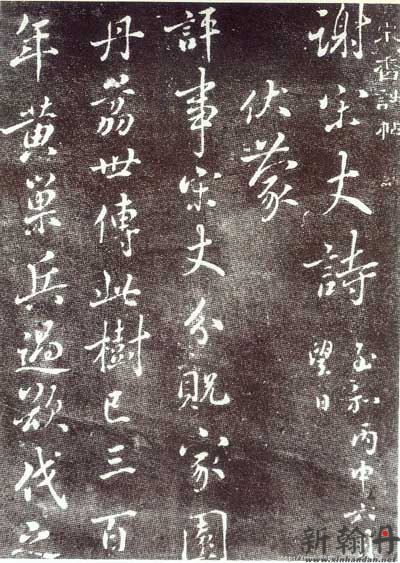 宋香詩帖
謝宋丈詩
至和丙申六
望日
伏蒙
評事宋丈分貺家園
丹荔世傳此樹已三百
年黃巢兵過欲伐之
新翰丹
www.xinhandan.com